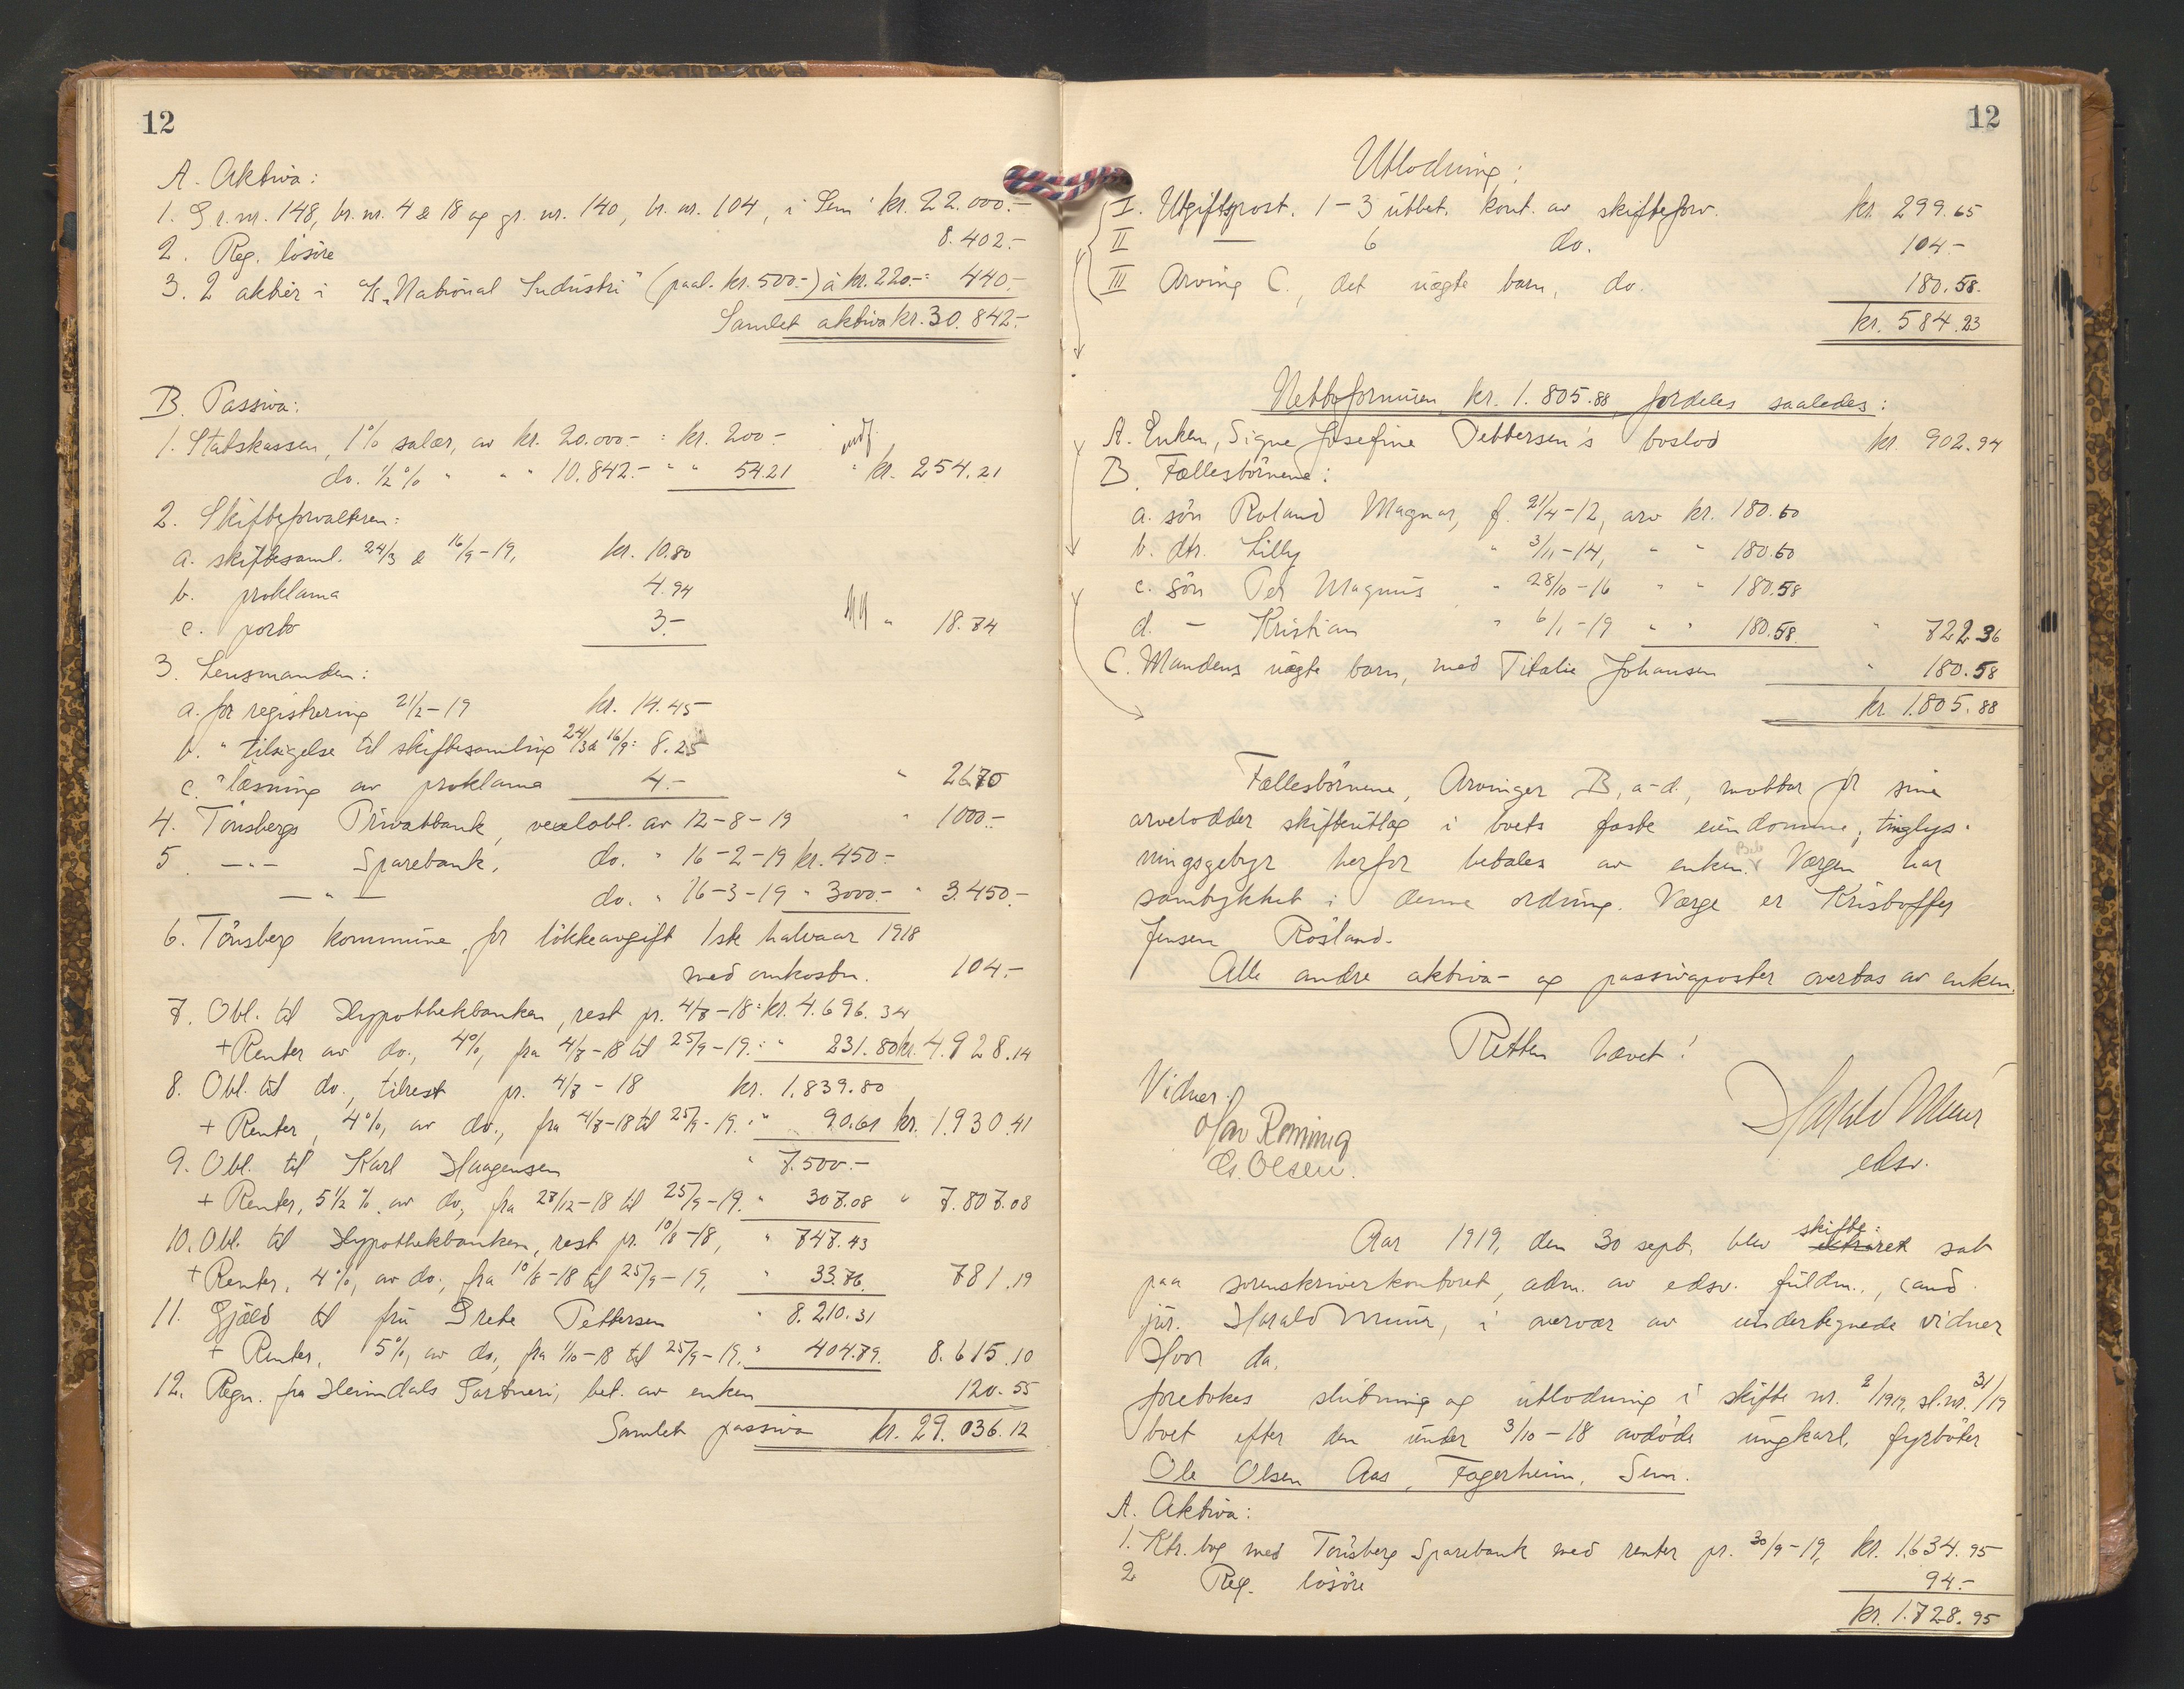 12
A. Aktiva:
1. Gr. nr. 148, br. nr. 4 & 18 og gr. nr. 140, br. nr. 104, i Sem kr. 22.000.-
2. Reg. løsøre 8.402.-
3. 2 aktier i A/S „National Industri" (paal. kr. 500.-) à kr. 220.-: 440.-
Samlet aktiva kr. 30.842.-
B. Passiva:
1. Statskassen, 1% salær, av kr. 20.000.- : kr. 200.-
do. ½% " " " 10.842.- " " 54.21 " kr. 254.21
2. Skifteforvalteren:
a. skiftesaml. 24/3 & 16/9-19, kr. 10.80
b. proklama 4.94
c. porto 3.- " 18.74
3. Lensmanden:
a. for registrering 21/2-19 kr. 14.45
b. " tilsigelse til skiftesamling 24/3 & 16/9: 8.25
c. " læsning av proklama 4.- " 26.70
4. Tønsbergs Privatbank, vexelobl. av 12-8-19 " 1000.-
5. -"- Sparebank, do. " 16-2-19 kr. 450.-
-"- do. " 16-3-19 " 3000.- " 3.450.-
6. Tønsberg kommune, for løkkeavgift 1ste halvaar 1918
med omkostn. 104.-
7. Obl. til Hypothekbanken, rest pr. 4/7-18: kr. 4.696.34
+ Renter av do., 4%, fra 4/7-18 til 25/9-19. : " 231.80 kr. 4.928.14
8. Obl. til do., tilrest pr. 4/7-18 kr. 1.839.80
+ Renter, 4%, av do., fra 4/7-18 til 25/9-19. " 90.61 kr. 1.930.41
9. Obl. til Karl Haagensen " 7.500.-
+ Renter, 5½%, av do., fra 27/12-18 til 25/9-19. " 307.08 " 7.807.08
10. Obl. til Hypothekbanken, rest pr. 10/8-18, " 747.43
+ Renter, 4%, av do., fra 10/8-18 til 25/9-19, " 33.76. 781.19
11. Gjæld til fru Grete Pettersen " 8.210.31
+ Renter, 5%, av do., fra 1/10-18 til 25/9-19. " 404.79. 8.615.10
12. Regn. fra Heimdals Gartneri, bet. av enken 120.55
Samlet passiva kr. 29.036.12
12
Utlodning:
I. Utgiftspost. 1-3 utbet. kont. av skifteforv. kr. 299.65
II — 6 do. 104.-
III Arving C., det uegte barn, do. 180.58.
kr. 584.23
Nettoformuen kr. 1.805.88 fordeles saaledes:
A. Enken, Signe Josefine Pettersen's boslod kr. 902.94
B. Fællesbørnene:
a. søn Roland Magnar, f. 21/4-12, arv kr. 180.60
b. dtr. Lilly " 3/11-14, " " 180.60
c. søn Per Magnus " 28/10-16 " " 180.58
d. - Kristian " 6/1-19 " " 180.58. " 722.36
C. Mandens uægte barn, med Titalie Johansen " 180.58
kr. 1.805.88
Fællesbørnene, Arvinger B, a-d., mottar for sine
arvelodder skifteutlæg i boets faste eiendomme; tinglys-
ningsgebyr herfor betales av enken. Værgen har
samtykket i denne ordning. Værge er Kristoffer
Jensen Røsland.
Alle andre aktiva- og passivaposter overtas av enken.
Retten hævet!
Vidner:
Olav Rønning
Cs. Olsen.
Harald Muur
edsv.
Aar 1919, den 30 sept. blev skifte-
ekstraret sat
paa sorenskriverkontoret, adm. av edsv. fuldm., cand.
jur. Harald Muur, i overvær av undertegnede vidner
Hvor da,
foretokes slutning og utlodning i skifte nr. 2/1919, sl. nr. 31/19
boet efter den under 3/10-18 avdøde ungkarl, fyrbøter
Ole Olsen Aas, Fagerheim, Sem.
A. Aktiva:
1. Ktr. bog med Tønsberg Sparebank med renter pr. 30/9-19, kr. 1.634.95
2. Reg. løsøre 94.-
kr. 1.728.95